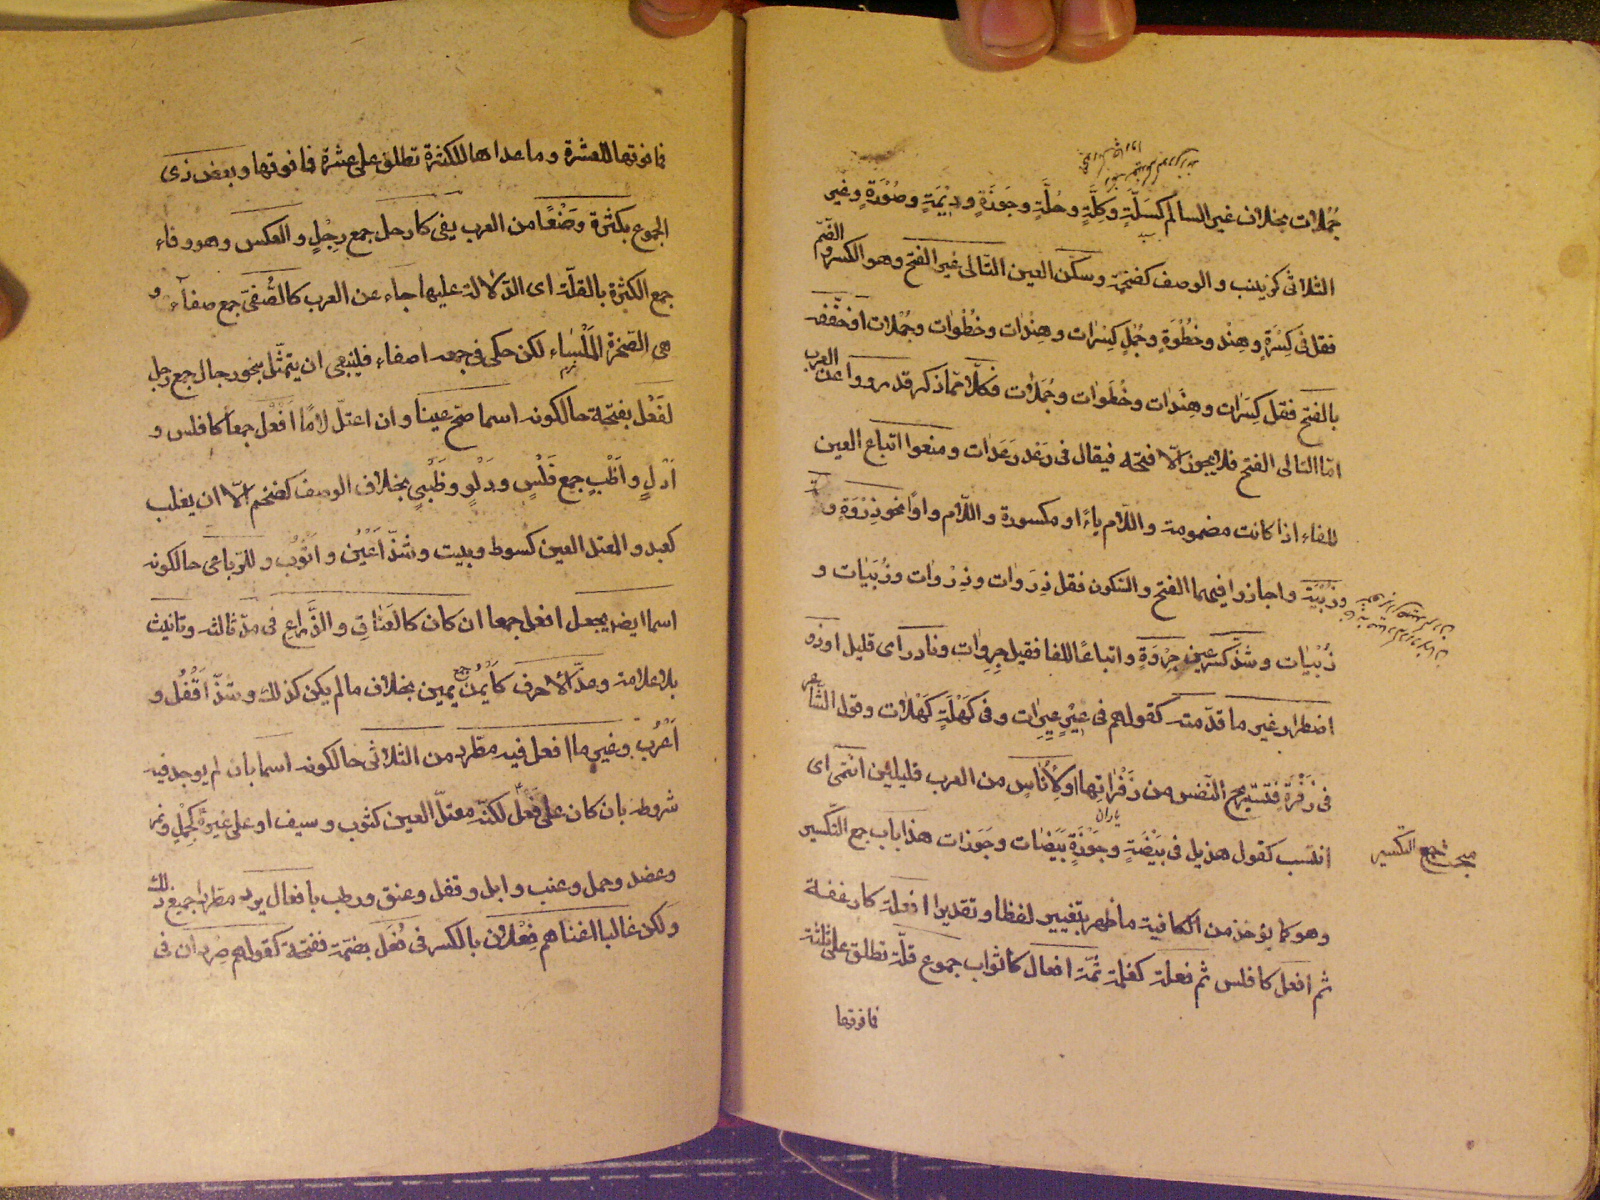 جُمُلات بخلاف غير السالم كسَلّةٍ وكِلّةٍ وحُلّةٍ وجَوزَةٍ وديْمَةٍ وصُوْرَةٍ وغير
الثلاثى كزينب والوصف كضخمة وسكّن العين التّالى غير الفتح وهو الكسر والضّم
فقل فى كِسْرَةٍ وهِنْدٍ وخطْوَةٍ وجُمْلٍ كِسْرات وهِنْدات وخُطْوات وجُمْلات او خفّفه
بالفتح فقل كِسَرات وهِنَدات وخُطَوات وجُمَلات فكلّا ممّا ذكر قد رووا عن العرب
امّا التالى الفتح فلا يجوز الّا فتحه فيقال فى دَعْد دَعَدات ومنعوا اتباع العين
للفاء اذا كانت مضمومة واللّام ياءً او مكسورة واللّام واوًا نحو ذِرْوَةٍ و
وزُبْيَة واجازوا فيهما الفتح والسّكون فقل ذِرَوات وذِرْوات وزُبَيَات و
زُبْيَات وشذّ كسر عين جِرْوَةٍ واتباعًا للفا فقيل جِرِوات ونادر اى قليل او ذو
اضطرار غير ما قدّمته كقولهم فى عِيْرٍ عِيَرات وفى كَهْلَةٍ كَهَلات وقول الشاعر
فى زَفْرَةٍ فتستريح النّفس من زَفْراتِها او لأُناسٍ من العرب قليلين انتمى اى
انتسب كقول هذيل فى بَيْضَةٍ وجَوْزَةٍ بَيَضات وجَوَزات هذا باب جمع التّكسير
ياران
مبحث جمع التكسير
وهو كما يؤخذ من الكافية ما ظهر بتغيير لفظا وتقديرا افعلة كارغفة
ثم افعل كافلس ثم فعلة كغلمة ثمّة افعال كاثواب جموع قلّة تطلق على ثلثة
فما فوقها
فما فوقها للعشرة وما عداها للكثرة تطلق على عشرة فما فوقها وبعض ذى
الجموع بكثرة وضْعًا من العرب يفى كارجل جمع رِجْلٍ والعكس وهو وفاء
جمع الكثرة بالقلّة اى الدّلالة عليها جاء عن العرب كالصُّفىّ جمع صفاة و
هى الصّخرة المَلْسَاء لكن حكى فى جمعه اصفاء فلينبغى ان يتمثّل بنحو رجال جمع رجل
لفَعْل بفتحة حالكونه اسما صحّ عينا وان اعتلّ لامًا اَفْعُل جمعا كافلس و
اَدْلٍ واَظْبٍ جمع فَلْسٍ ودَلْوٍ وظَبْىٍ بخلاف الوصف كضخم الّا ان يغلب
كعبد والمعتل العين كسوط وبيت وشذّ اَعْيُن واَثْوُب وللرّباعى حالكونه
اسما ايضا يجعل افعل جمعا ان كان كالعَنَاقِ والذِّراعِ فى مدّ ثالثه وتانيث
بلا علامة وعدّ الاحرف كاَيْمُن جمع يمين بخلاف ما لم يكن كذلك وشذّ اقْفُل و
اَغْرُب وغير ما افعل فيه مطّرد من الثلاثى حالكونه اسما بان لم يوجد فيه
شروطه بان كان على فَعْلٍ لكنّه معتلّ العين كثوب وسيف او على غيره كجِمْلٍ ونمر
وعضد وحمل وعنب وابل وقفل وعنق ورطب بافعال يرد مطّردا جميع ذلك
ولكن غالبا اغناهم فِعْلان بالكسر فى فُعَل بضمّة ففتحة كقولهم صِردان فى